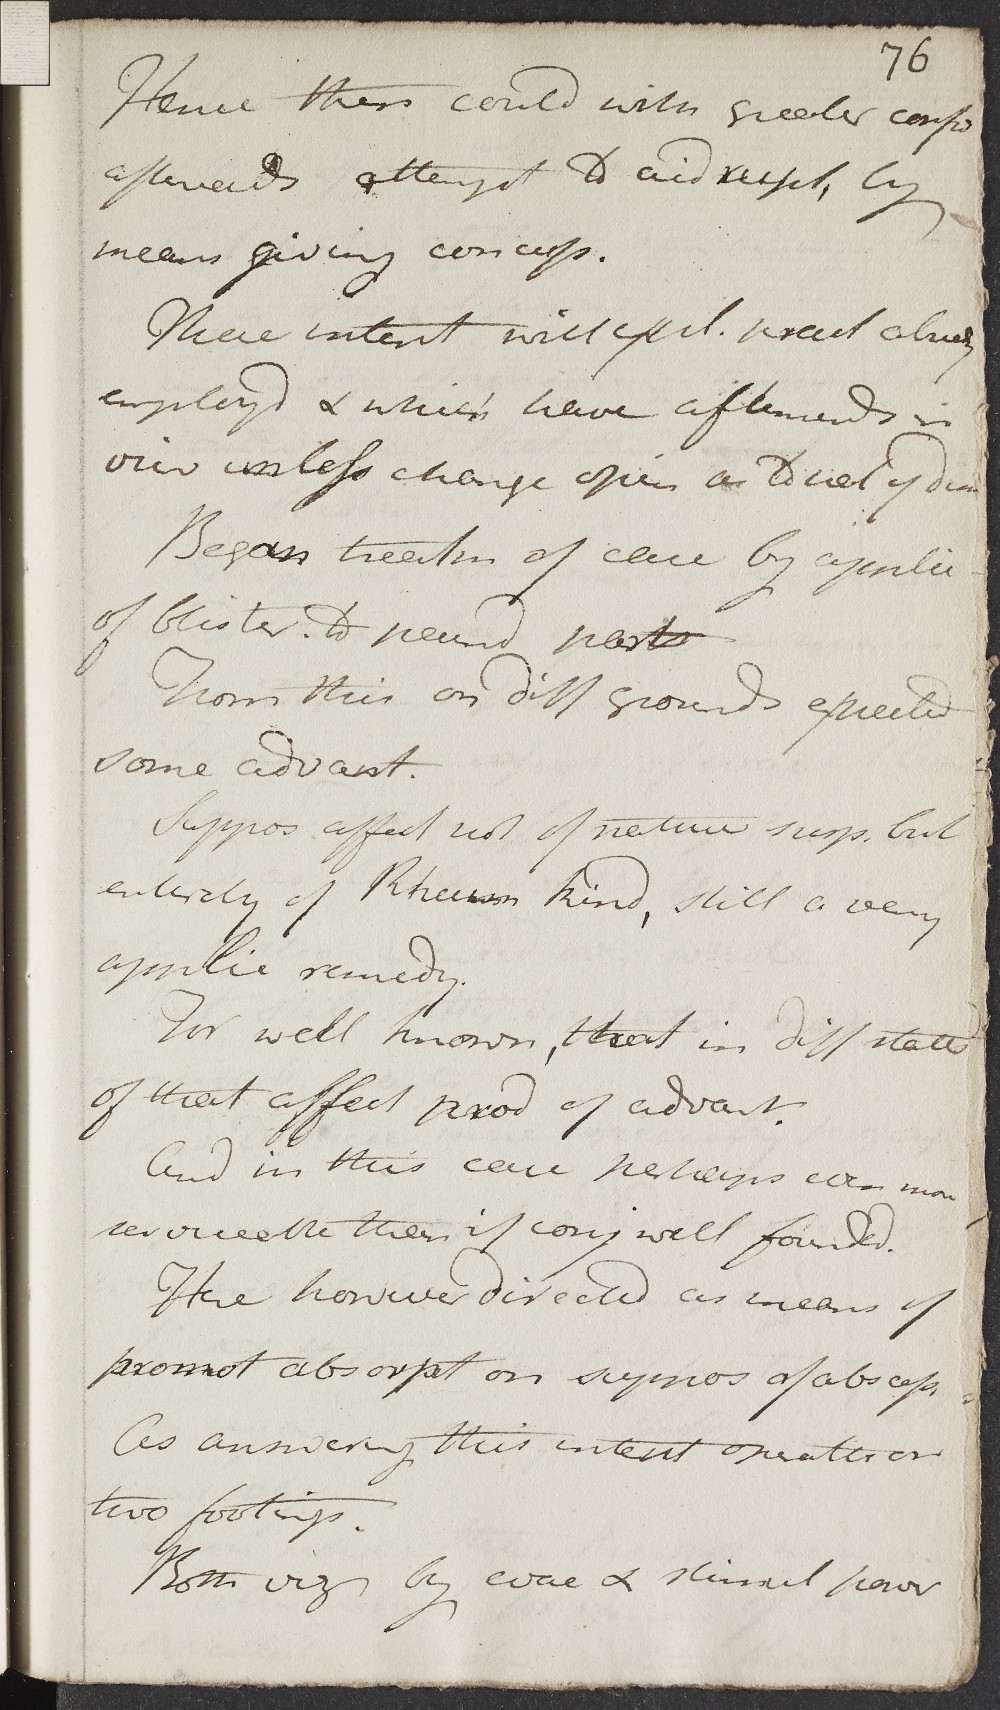 76
Hence then could with greater confid
afterwards attempt to aid rupt, by
means giving concuss.
These intent will expl. pract already
employ'd & which have afterwards in
view unless change opin as to nat of dis
Began treatm of case by applic
of blister. to pained part
From this on diff grounds expected
some advant.
Suppos affect not of nature susp. but
entirely of Rheum kind, still a very
applic remedy.
For well known, that in diff states
of that affect prod of advant.
And in this case perhaps even more
serviceable then if conj well founded.
Here however directed as means of
promot absorpt on suppos of abscess.
As answering this intent operates on
two footings.
Both viz by evac & stimul power